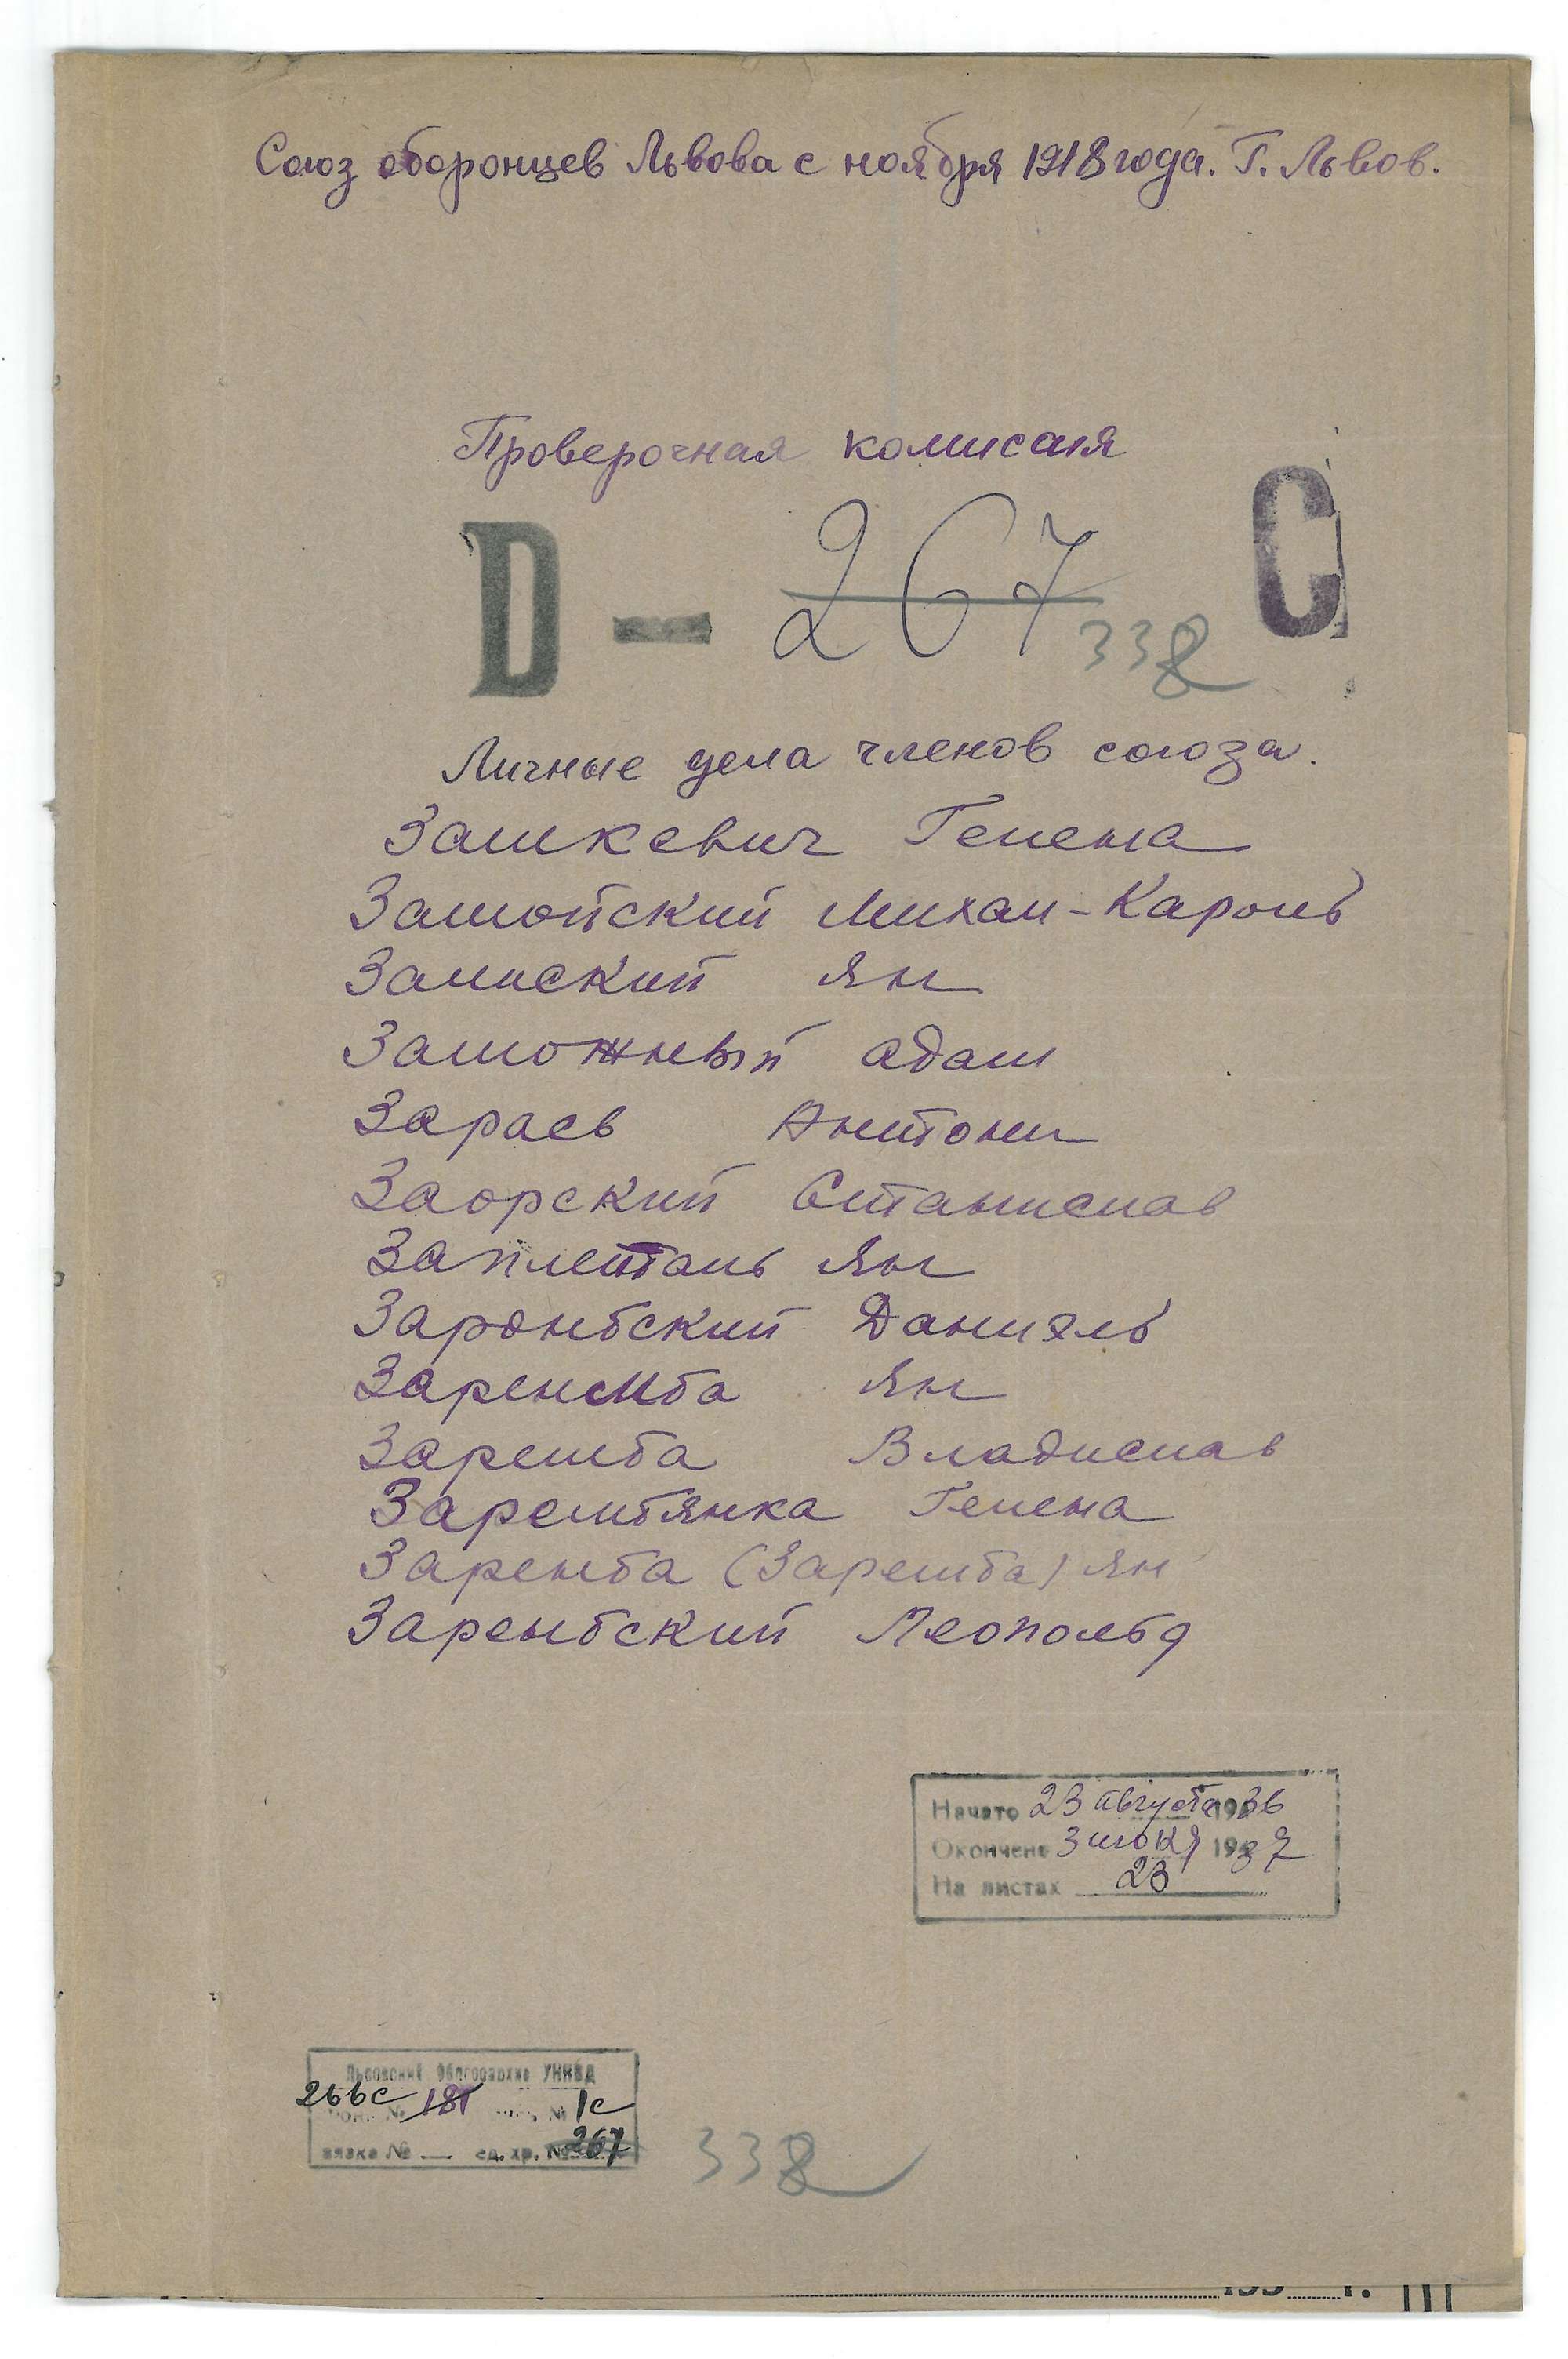 Союз оборонцев Львова с ноября 1918 года. Г. Львов.
Проверочная комиссия
D — 267 C
338
Личные дела членов союза.
Замкевич Гелена
Замойский Михал-Кароль
Замский Ян
Заможный Адам
Зараев Антони
Заорский Станислав
Заплеталь Ян
Заромбский Даниэль
Заренмба Ян
Заремба Владислав
Зарембянка Гелена
Заренба (Заремба) Ян
Зарембский Леопольд
Начато 23 августа 1936
Окончено 3 июля 1937
На листах 23
Львовский Облгосархив УНКВД
266с 181 № 1с
вязка № — ед. хр. № 267
338